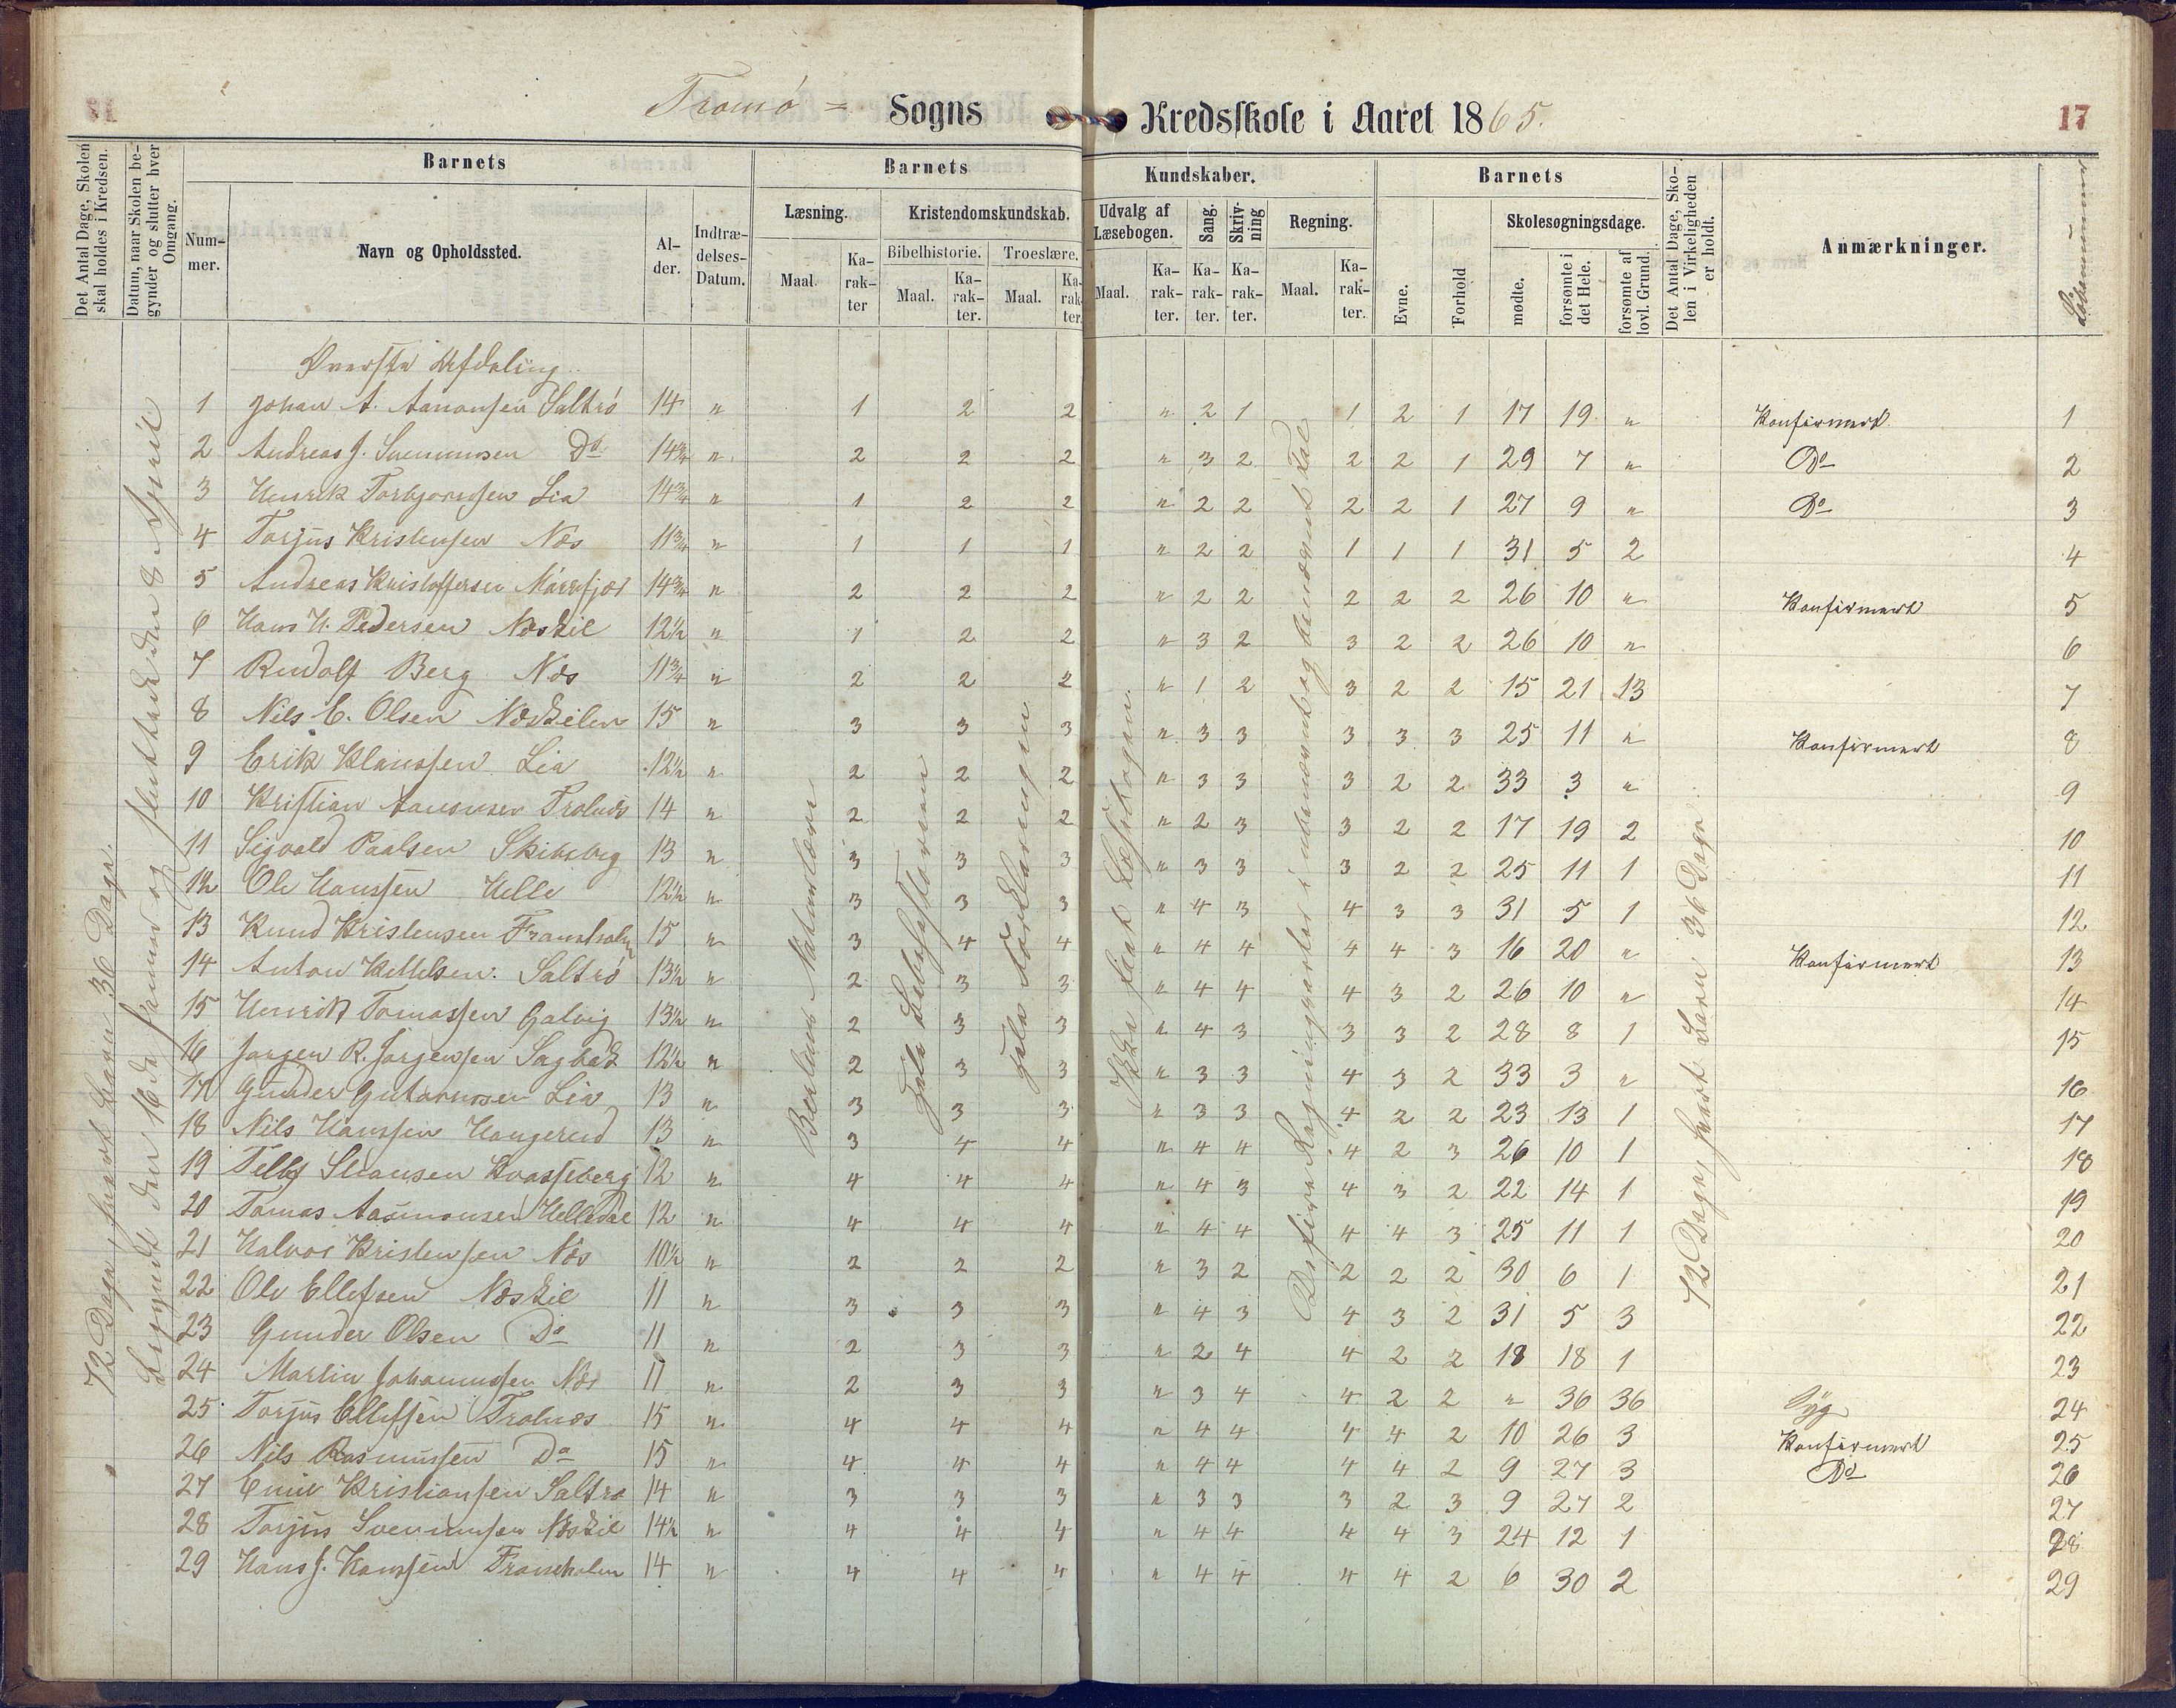 Tromø = Sogns Kredsskole i Aaret 1865.
17
Det Antal Dage, Skolen skal holdes i Kredsen.
Datum, naar Skolen begynder og slutter hver Omgang.
Barnets
Nummer.
Navn og Opholdssted.
Alder.
Indtrædelses-Datum.
Barnets Kundskaber.
Læsning.
Maal.
Karakter
Kristendomskundskab.
Bibelhistorie.
Maal.
Karakter.
Troeslære.
Maal.
Karakter.
Udvalg af Læsebogen.
Maal.
Karakter.
Sang.
Karakter.
Skrivning
Karakter.
Regning.
Maal.
Karakter.
Barnets
Evne.
Forhold
Skolesøgningsdage.
mødte.
forsømte i det Hele.
forsømte af lovl. Grund.
Det Antal Dage, Skolen i Virkeligheden er holdt.
Anmærkninger.
Løbenummer
72 Dage, hvert Barn 36 Dage.
Begyndt den 16de og sluttede den 8 April
Øverste Afdeling.
Hele Bibelhistorien
Hele Forklaringen
Ikke havt Læsebogen.
De fire Regningsarter i ubenævnt og benævnt Tal
72 Dage, hvert Barn 36 Dage
1 Johan A. Aanonsen Saltrø 14 " 1 2 2 " 2 1 1 2 1 17 19 " Konfirmert 1
2 Andreas J. Svenumsen Do 14 3/4 " 2 2 2 " 3 2 2 2 1 29 7 " Do 2
3 Henrik Torbjørnsen Lia 14 3/4 " 1 2 2 " 2 2 2 2 1 27 9 " Do 3
4 Torjus Kristensen Næs 11 3/4 " 1 1 1 " 2 2 1 1 1 31 5 2 4
5 Andreas Kristoffersen Mørefjær 14 3/4 " 2 2 2 " 2 2 2 2 2 26 10 " Konfirmert 5
6 Hans H. Pedersen Næskil 12 1/2 " 1 2 2 " 3 2 3 2 2 26 10 " 6
7 Rudolf Berg Næs 11 3/4 " 2 2 2 " 1 2 3 2 2 15 21 13 7
8 Nils E. Olsen Næskilen 15 " 3 3 3 " 3 3 3 3 3 25 11 " Konfirmert 8
9 Erik Klaussen Lia 12 1/2 " 2 2 2 " 3 3 3 2 2 33 3 " 9
10 Kristian Aanonsen Trolnæs 14 " 2 2 2 " 2 3 3 2 2 17 19 2 10
11 Sigvald Paalsen Skibsbeg 13 " 3 3 3 " 3 3 3 2 2 25 11 1 11
12 Ole Hanssen Helle 12 1/2 " 3 3 3 " 4 3 4 3 3 31 5 1 12
13 Knud Kristensen 15 " 3 4 4 " 4 4 4 4 3 16 20 " Konfirmert 13
14 Anton Kittelsen. Saltrø 13 1/2 " 2 3 3 " 4 4 4 3 2 26 10 " 14
15 Henrik Tomassen Galvig 13 1/2 " 2 3 3 " 4 3 3 3 2 28 8 1 15
16 Jørgen R. Jørgensen 12 1/2 " 2 3 3 " 3 3 4 3 2 33 3 " 16
17 Gunder Gutormsen Lia 13 " 3 3 3 " 3 3 4 2 2 23 13 1 17
18 Nils Hanssen Haugerud 13 " 3 4 4 " 4 4 4 2 3 26 10 1 18
19 12 " 4 4 4 " 4 3 4 3 2 22 14 1 19
20 Tomas Aasmonsen Helledal 12 " 4 4 4 " 4 4 4 4 3 25 11 1 20
21 Halvor Kristensen Næs 10 1/2 " 2 2 2 " 3 2 2 2 2 30 6 1 21
22 Ole Ellefsen Næskil 11 " 3 3 3 " 4 3 4 3 2 31 5 3 22
23 Gunder Olsen Do 11 " 2 3 3 " 2 4 4 2 2 18 18 1 23
24 Martin Johannessen Næs 11 " 2 3 3 " 3 4 4 2 2 " 36 36 Syg 24
25 Torjus Ellefsen Trolnæs 15 " 4 4 4 " 4 4 4 4 2 10 26 3 Konfirmert 25
26 Nils Rasmussen Do 15 " 4 4 4 " 4 4 4 4 2 9 27 3 Do 26
27 Emil Kristiansen Saltrø 14 " 3 3 3 " 3 3 3 2 3 9 27 2 27
28 Torjus Svenumsen Næskil 14 1/2 " 4 4 4 " 4 4 4 4 3 24 12 1 28
29 Hans J. Hanssen 14 " 4 4 4 " 4 4 4 4 2 6 30 2 29